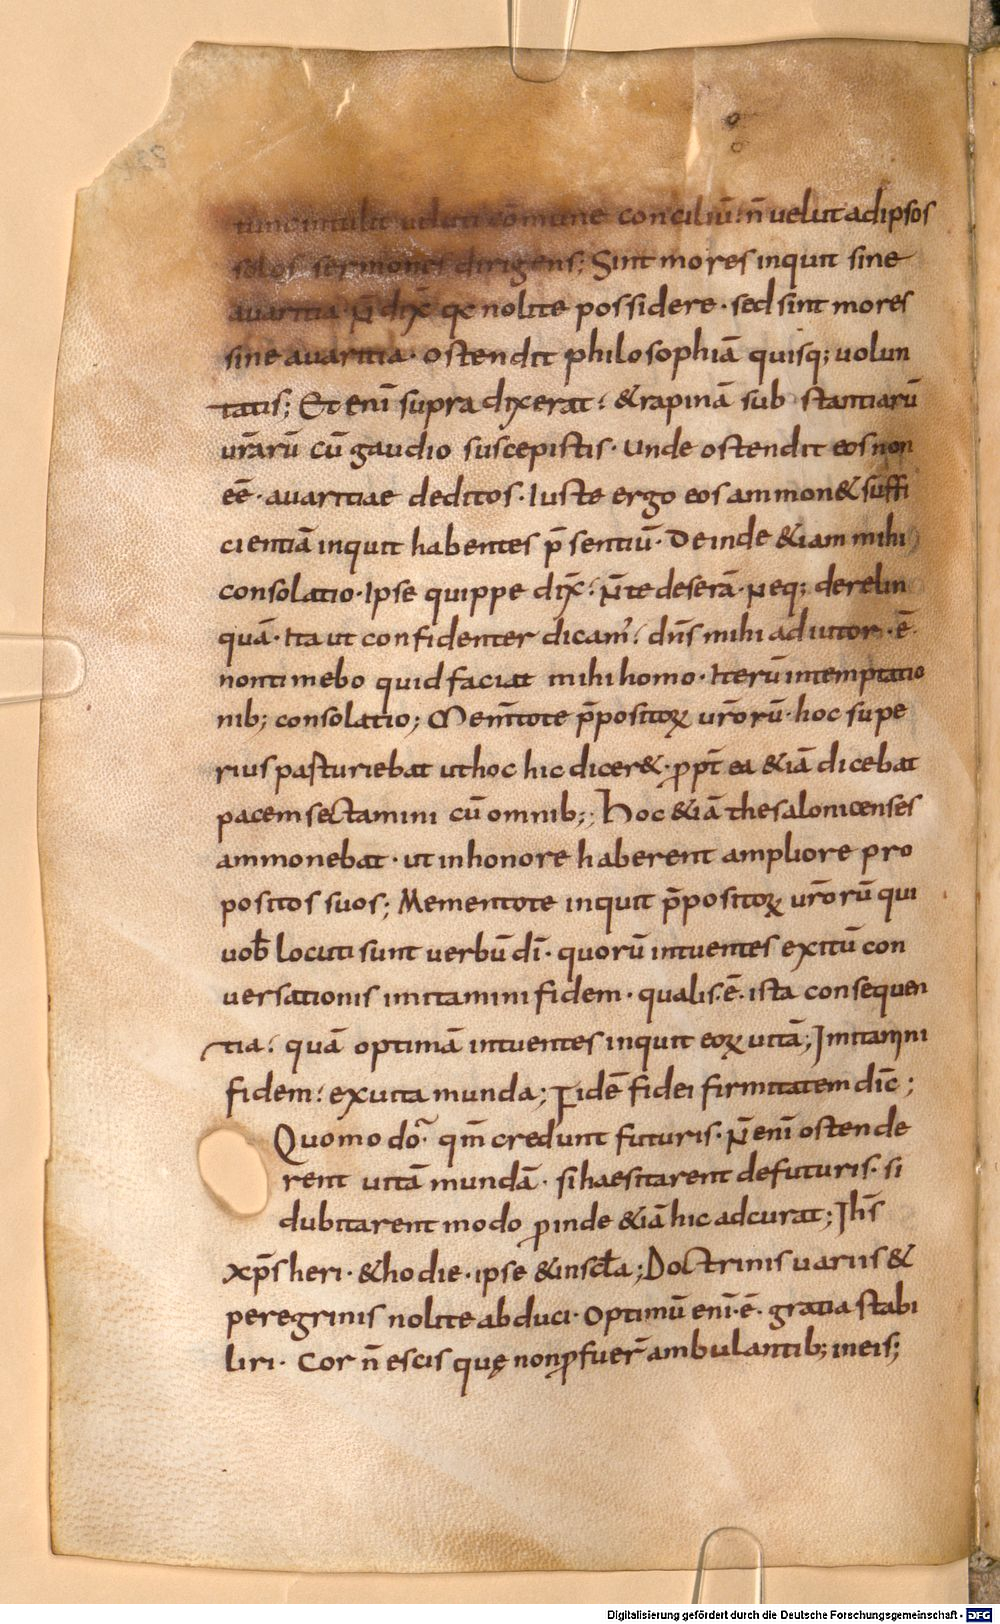 tunc intulit velut cōmune conciliū: n̄ velut ad ipsos
solos sermones dirigens; Sint mores inquit sine
avaritia. N̄ dix̄ qc nolite possidere. sed sint mores
sine avaritia. ostendit philosophiā quisq; volun
tatis; Et enī supra dixerat: & rapinā sub stantiarū
urārū cū gaudio suscepistis. Unde ostendit eos non
eē. avaritiae deditos. Iuste ergo eos ammon& suffi
cientiā inquit habentes p̄sentiū. Deinde &iam mihi
consolatio. Ipse quippe dix̄: N̄ te deserā. Neq; derelin
quā. Ita ut confidenter dicam': dn̄s mihi adiutor. ē.
non timebo quid faciat mihi homo. Iterū in temptatio
nib; consolatio; Mem̄tote p̄positoꝝ ur̄orū. hoc supe
rius pasturiebat ut hoc hic dicer&. ꝓpt̄ ea &iā dicebat
pacem sectamini cū omnib;; Hoc &iā thesalonicenses
ammonebat. ut in honore haberent ampliore pro
positos suos; Mementote inquit p̄positoꝝ ur̄orū qui
vob̄ locuti sunt verbū dī. quorū intuentes exitū con
versationis imitamini fidem. qualis. ē. ista consequen
tia: quā optimā intuentes inquit eoꝝ vitā; Imitamini
fidem: ex vita munda; Fidē fidei firmitatem dic̄;
Quomodo? qm̄ credunt futuris. N̄ enī ostende
rent vitā mundā. si haesitarent de futuris. si
dubitarent modo ꝓinde &iā hic adcurat; Ih̄s
xp̄s heri. & hodie. ipse & in scl̄a; Doctrinis variis &
peregrinis nolite abduci. Optimū enī. ē. gratia stabi
liri. Cor n̄ escis quę non ꝓfuer̄ ambulantib; in eis;
Digitalisierung gefördert durch die Deutsche Forschungsgemeinschaft - DFG